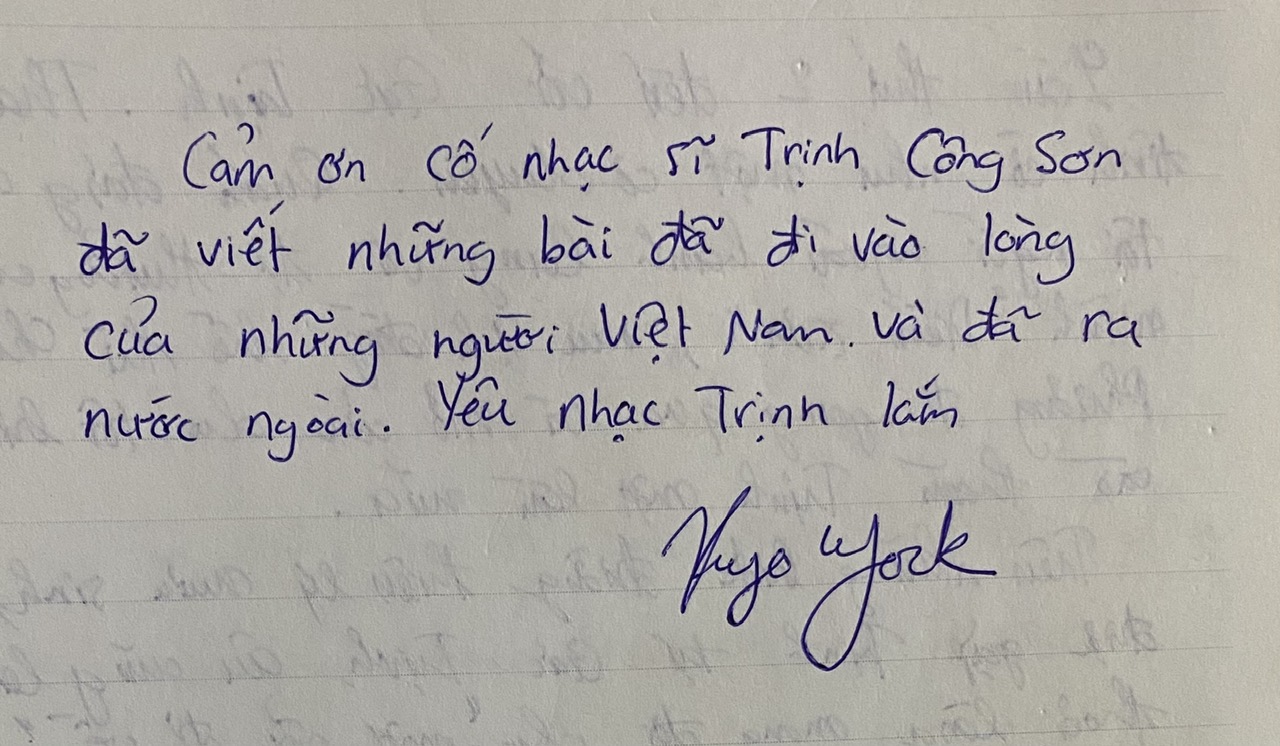 Cảm ơn cố nhạc sĩ Trịnh Công Sơn
đã viết những bài đã đi vào lòng
của những người Việt Nam. và đã ra
nước ngoài. Yêu nhạc Trịnh lắm
Kyo York